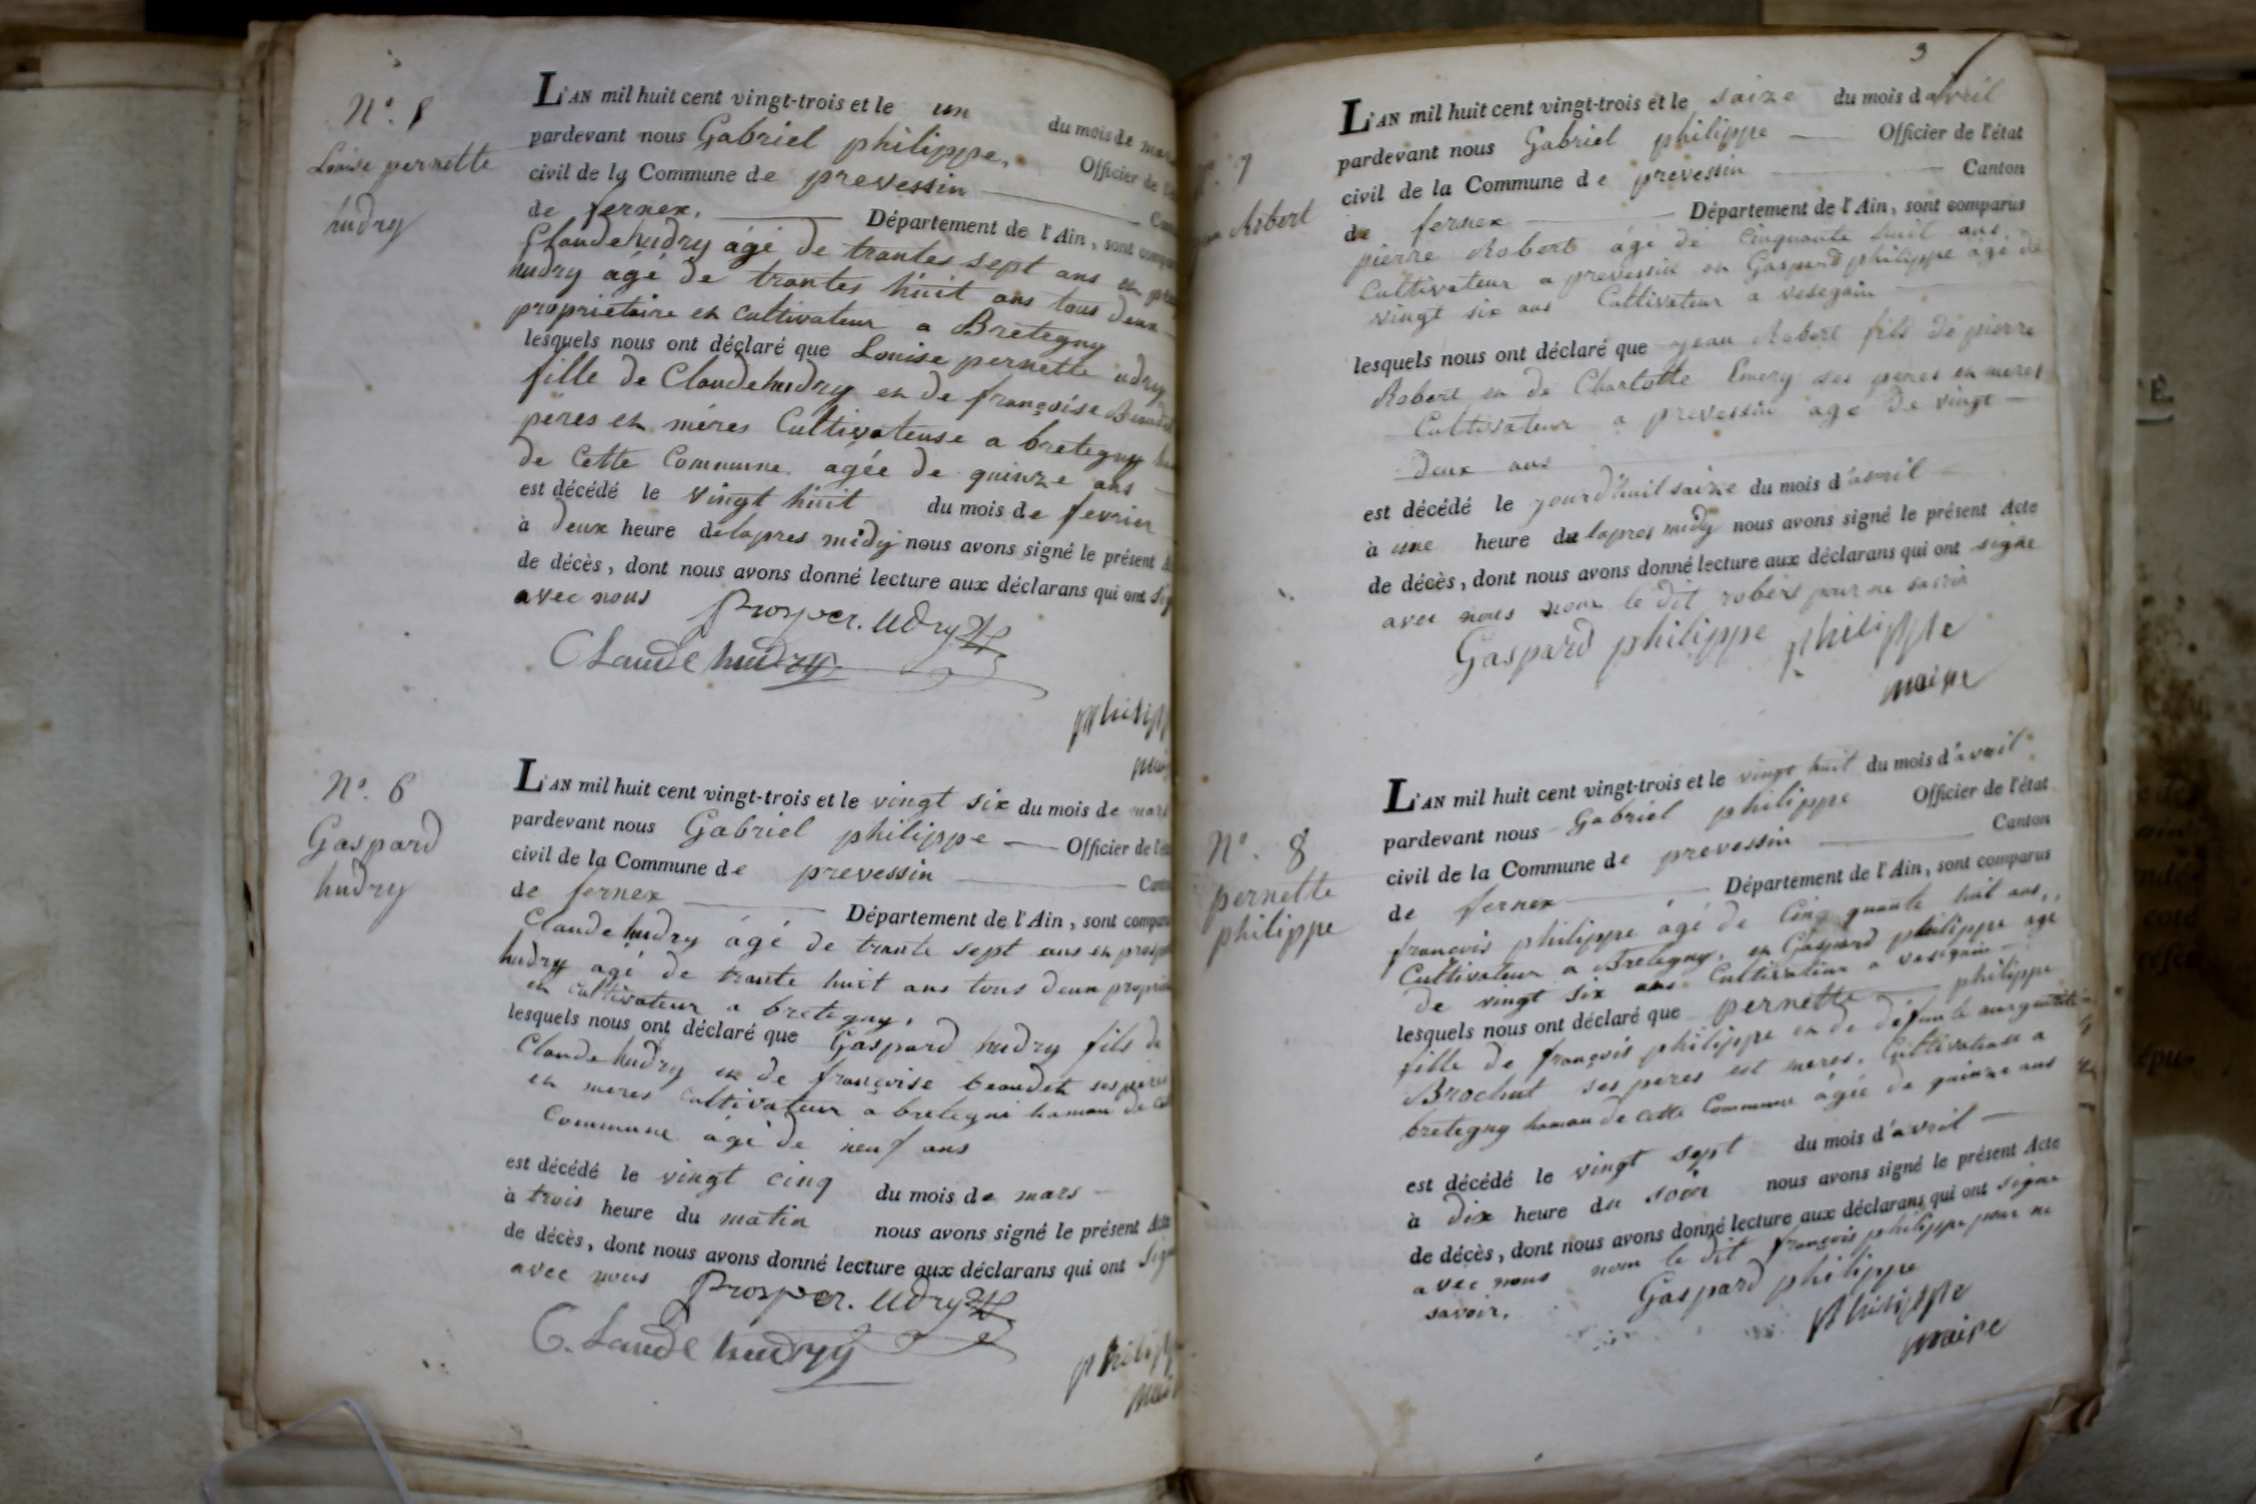 N.°
Louise pernette
hudry
L'AN mil huit cent vingt-trois et le un du mois de
pardevant nous Gabriel philippe, Officier de
civil de la Commune de prevessin
de fernex, Département de l'Ain, sont
Claude hudry âgé de trantes sept ans en
hudry agé de trantes huit ans tous deux
propriétaire en cultivateur a Bretegny
lesquels nous ont déclaré que Louise pernette udry
fille de Claude hudry en de françoise
peres en méres Cultivateuse a bretegny
de Cette Commune agée de quinze ans
est décédé le vingt huit du mois de fevrier
à deux heure delapres midy nous avons signé le présent
de décès, dont nous avons donné lecture aux déclarans qui ont
avec nous
Prosper. Udry
Claude hudry
N.° 6
Gaspard
hudry
L'AN mil huit cent vingt-trois et le vingt six du mois de mars
pardevant nous Gabriel philippe Officier de
civil de la Commune de prevessin
de fernex Département de l'Ain, sont
Claude hudry âgé de trante sept ans en
hudry agé de trante huit ans tous deux
en cultivateur a bretegny,
lesquels nous ont déclaré que Gaspard hudry fils de
Claude hudry en de françoise beaudet ses
en meres cultivateur a bretegni hamau de
Commune âgé de neuf ans
est décédé le vingt cinq du mois de mars
à trois heure du matin nous avons signé le présent Acte
de décès, dont nous avons donné lecture aux déclarans qui ont
avec nous
Prosper. Udry
Claude hudry
3
7
Robert
L'AN mil huit cent vingt-trois et le saize du mois d avril
pardevant nous Gabriel philippe Officier de l'état
civil de la Commune de prevessin Canton
de fernex Département de l'Ain, sont comparus
pierre Robert âgé de cinquante huit ans,
Cultivateur a prevessin en Gaspard philippe agé de
vingt six ans Cultivateur a vesegnin
lesquels nous ont déclaré que jean Robert fils de pierre
Robert en de Charlotte Emery ses peres en meres
Cultivateur a prevessin age de vingt
deux ans
est décédé le jourd'huil saize du mois d'avril
à une heure de lapres midy nous avons signé le présent Acte
de décès, dont nous avons donné lecture aux déclarans qui ont signe
avec nous non le dit robert pour ne savoir
Gaspard philippe philippe
maire
N.° 8
pernette
philippe
L'AN mil huit cent vingt-trois et le vingt huit du mois d'avril
pardevant nous Gabriel philippe Officier de l'état
civil de la Commune de prevessin Canton
de fernex Département de l'Ain, sont comparus
francois philippe âgé de Cinq quante huit ans,
Cultivateur a Bretegny, en Gaspard philippe age
de vingt six ans Cultivateur a vesegnin
lesquels nous ont déclaré que pernette philippe
fille de françois philippe en de défunte
Brochut ses peres est meres. Cultivateuse a
bretegny hamau de cette Commune âgée de quinze ans
est décédé le vingt sept du mois d'avril
à dix heure du soir nous avons signé le présent Acte
de décès, dont nous avons donné lecture aux déclarans qui ont signe
avec nous non le dit françois philippe pour ne
savoir.
Gaspard philippe
philippe
maire